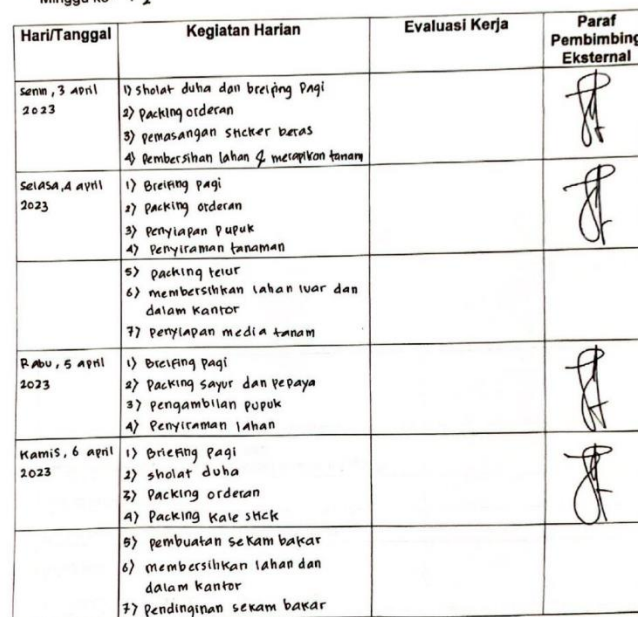 Minggu ke
Hari/Tanggal
Kegiatan Harian
Evaluasi Kerja
Paraf
Pembimbing
Eksternal
Senin, 3 April
2023
1) Sholat duha dan breiping Pagi
2) Packing orderan
3) pemasangan sticker beras
4) Pembersihan lahan & merapikon tanam
Selasa, 4 april
2023
1) Breifing pagi
2) Packing orderan
3) Penyiapan Pupuk
4) Penyiraman tanaman
5) packing telur
6) membersihkan lahan luar dan
dalam kantor
7) Penyiapan media tanam
Rabu, 5 April
2023
1) Breifing Pagi
2) Packing sayur dan pepaya
3) Pengambilan pupuk
4) Penyiraman lahan
Kamis, 6 april
2023
1) Briefing pagi
2) sholat duha
3) Packing orderan
4) Packing Kale stick
5) pembuatan sekam bakar
6) membersihkan lahan dan
dalam kantor
7) Pendinginan sekam bakar